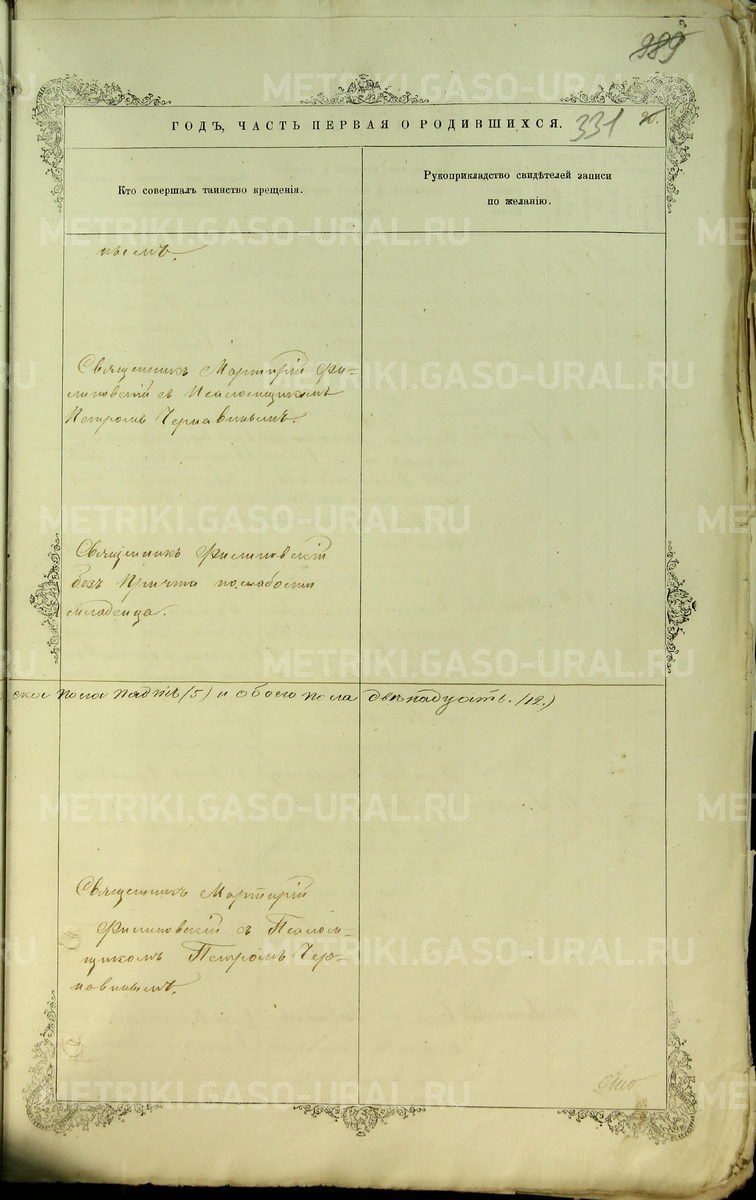 989
ГОДЪ, ЧАСТЬ ПЕРВАЯ О РОДИВШИХСЯ.
331
Кто совершалъ таинство крещенія.
Рукоприкладство свидѣтелей записи
по желанію.
Священникъ Мартирій Фи-
линовскій съ Псаломщикомъ
Петромъ Чернавинымъ.
Священникъ Филиновскій
безъ Причта по слабости
младенца.
ское пола пять (5) и обоего пола двенадцать. (12.)
Священникъ Мартирій
Филиновскій съ Псалом-
щикомъ Петромъ Чер-
навинымъ.
METRIKI.GASO-URAL.RU